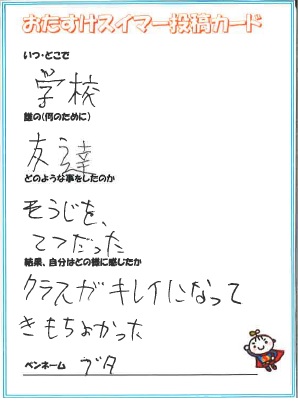 おたすけスイマー投稿カード
いつ・どこで
学校
誰の(何のために)
友達
どのような事をしたのか
そうじを、
てつだった
結果、自分はどの様に感じたか
クラスがキレイになって
きもちよかった
ペンネーム ブタ